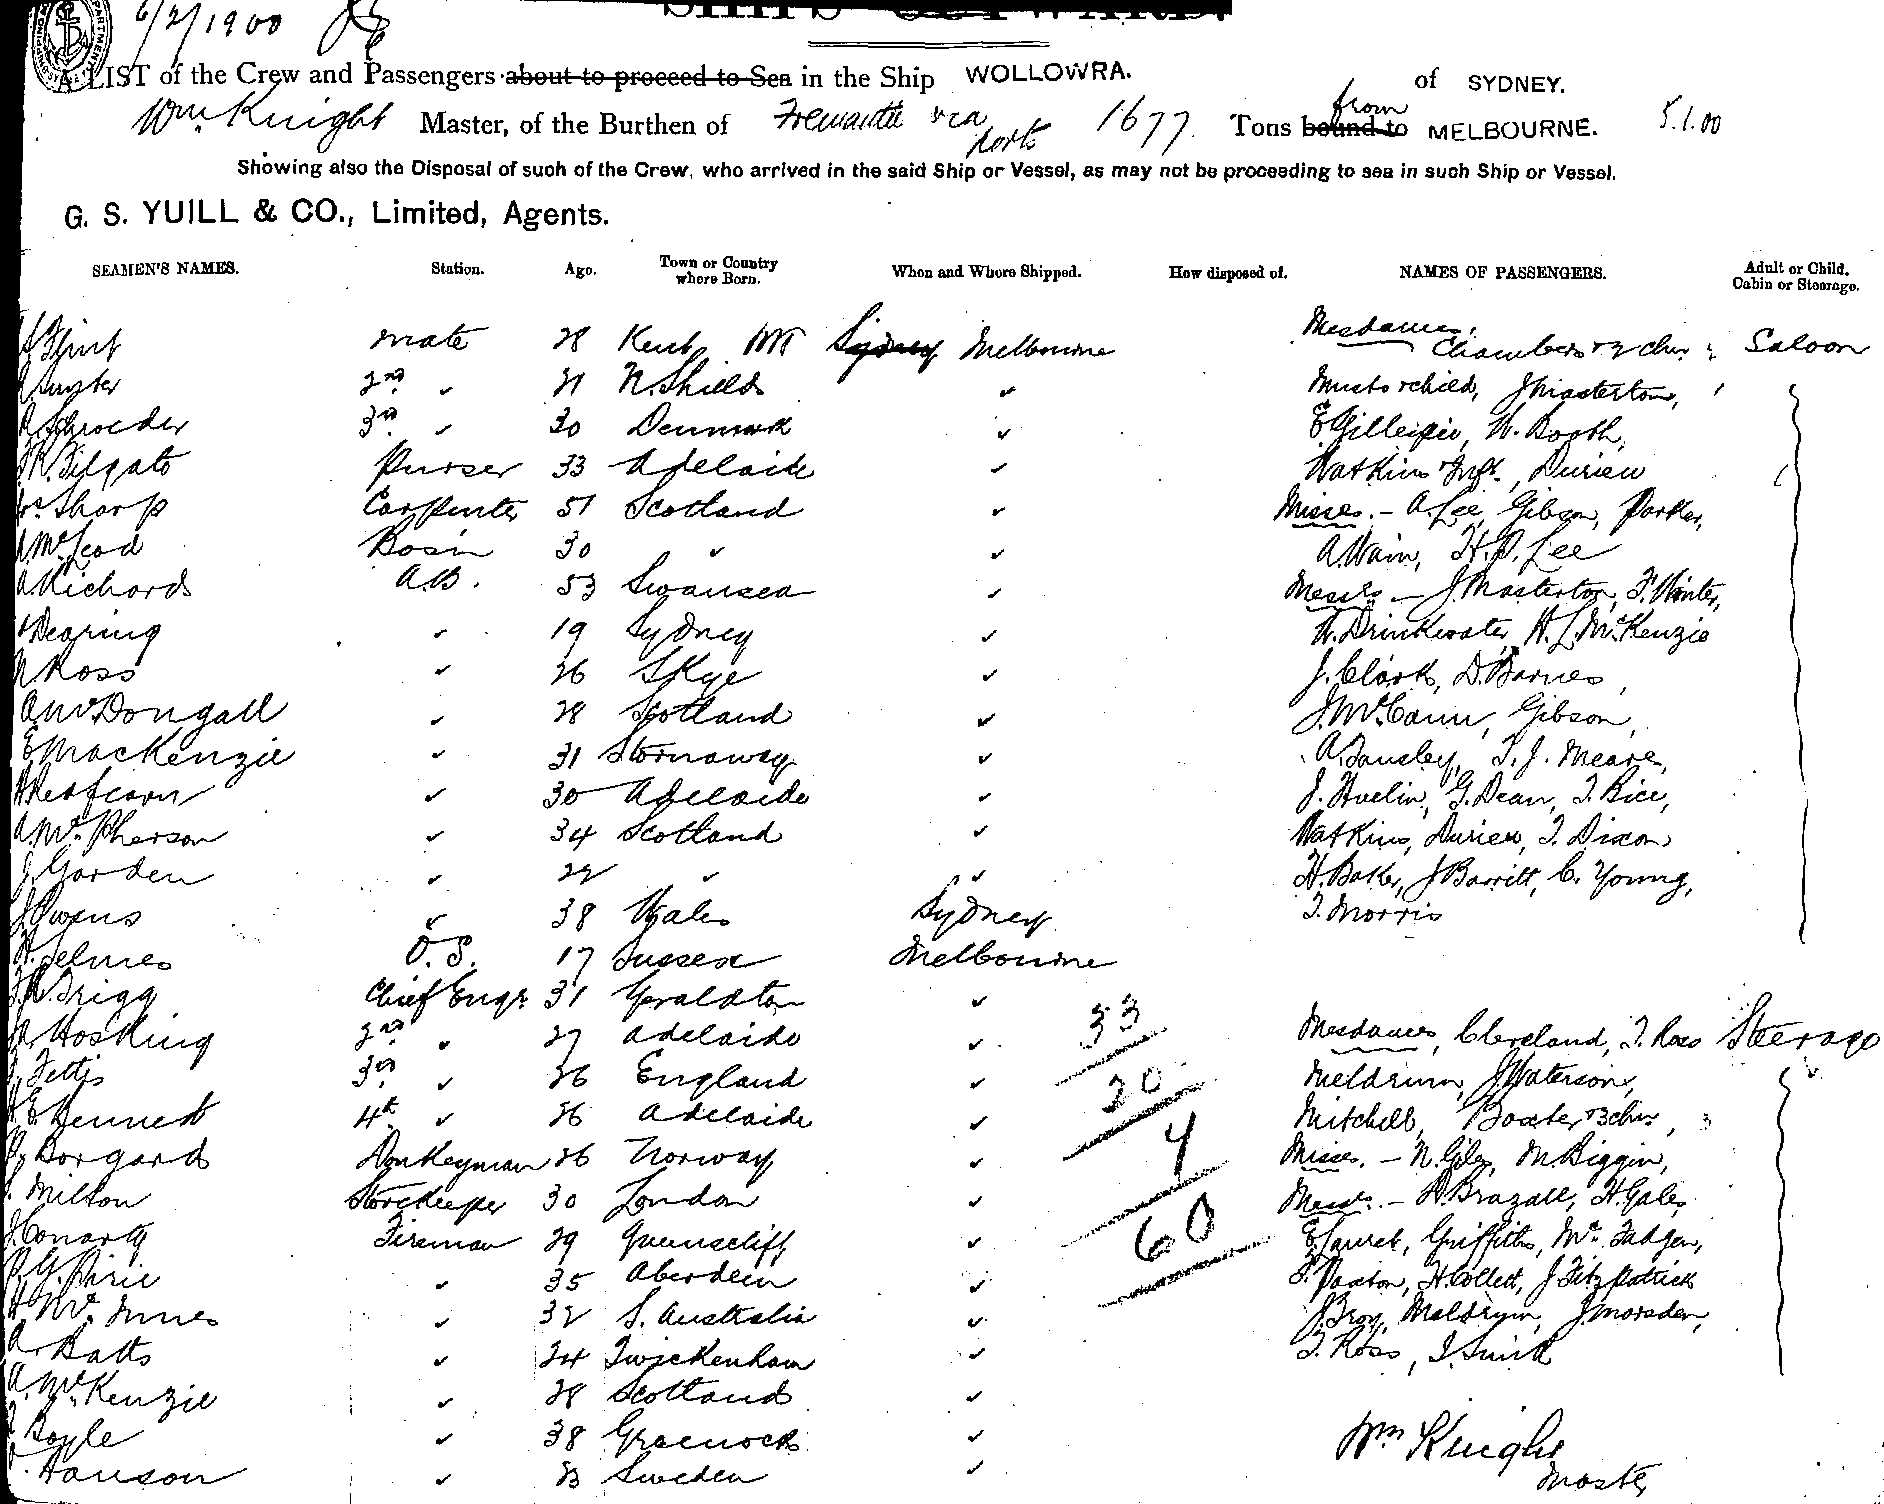 6/2/1900
A LIST of the Crew and Passengers about to proceed to Sea in the Ship WOLLOWRA. of SYDNEY.
Wm. Knight Master, of the Burthen of Fremantle via ports 1677 Tons bound to from MELBOURNE. 5.1.00
Showing also the Disposal of such of the Crew, who arrived in the said Ship or Vessel, as may not be proceeding to sea in such Ship or Vessel.
G. S. YUILL & CO., Limited, Agents.
SEAMEN'S NAMES. Station. Age. Town or Country where Born. When and Where Shipped. How disposed of. NAMES OF PASSENGERS. Adult or Child. Cabin or Steerage.
Flint mate 28 Kent Sydney Melbourne Mesdames, Chambers & 2 chn. Saloon
2nd 21 N. Shields & child, J Masterton,
Schroeder 3rd 30 Denmark E Gillespie, W. Booth,
Filgate Purser 33 Adelaide Watkins & Inft., Durieu
Sharp Carpenter 51 Scotland Misses. - A. Lee, Gibson, Parker,
McLeod Bosn 30 A. Wain, H. P. Lee
Richards A.B. 53 Swansea Messrs - J. Masterton, F. Winter,
Dearing 19 Sydney W. Drinkwater, H. L. McKenzie
N Ross 26 Skye J. Clark, D. Barnes,
A McDougall 28 Scotland J. McCann, Gibson,
E MacKenzie 31 Stornaway A. Tansley, T. J. Meare,
30 Adelaide J. Huelin, G. Dean, T. Rice,
A. McPherson 34 Scotland Watkins, Durieu, T. Dixon
J. Garden 22 H. Baker, J Barritt, C. Young,
J. Owens 38 Wales Sydney T. Morris
H. Selmes O.S. 17 Sussex Melbourne
Trigg Chief Engr. 31 Geraldton 33
Hosking 2nd 27 Adelaide Mesdames, Cleveland, T. Ross Steerage
Fettis 3rd 26 England 20 Meldrum, J Waterson,
E Kennett 4th 26 Adelaide Mitchell, Baxter & 3 chn,
Borgard Donkeyman 26 Norway 4 Misses. - N. Giles, M. Biggin,
Milton Storekeeper 30 London Messrs. - Brazall, H. Gales,
J Conarty Fireman 29 Queenscliff 60 Griffiths, McFadgen,
G. Pirie 35 Aberdeen Paxton, H. Collett, J Fitzpatrick
McInnes 32 S. Australia J. Troy, Meldrum, J Marsden,
Batts 24 Twickenham T. Ross, J. Smith
A. McKenzie 28 Scotland
Boyle 38 Greenock Wm Knight
Hanson 23 Sweden Master